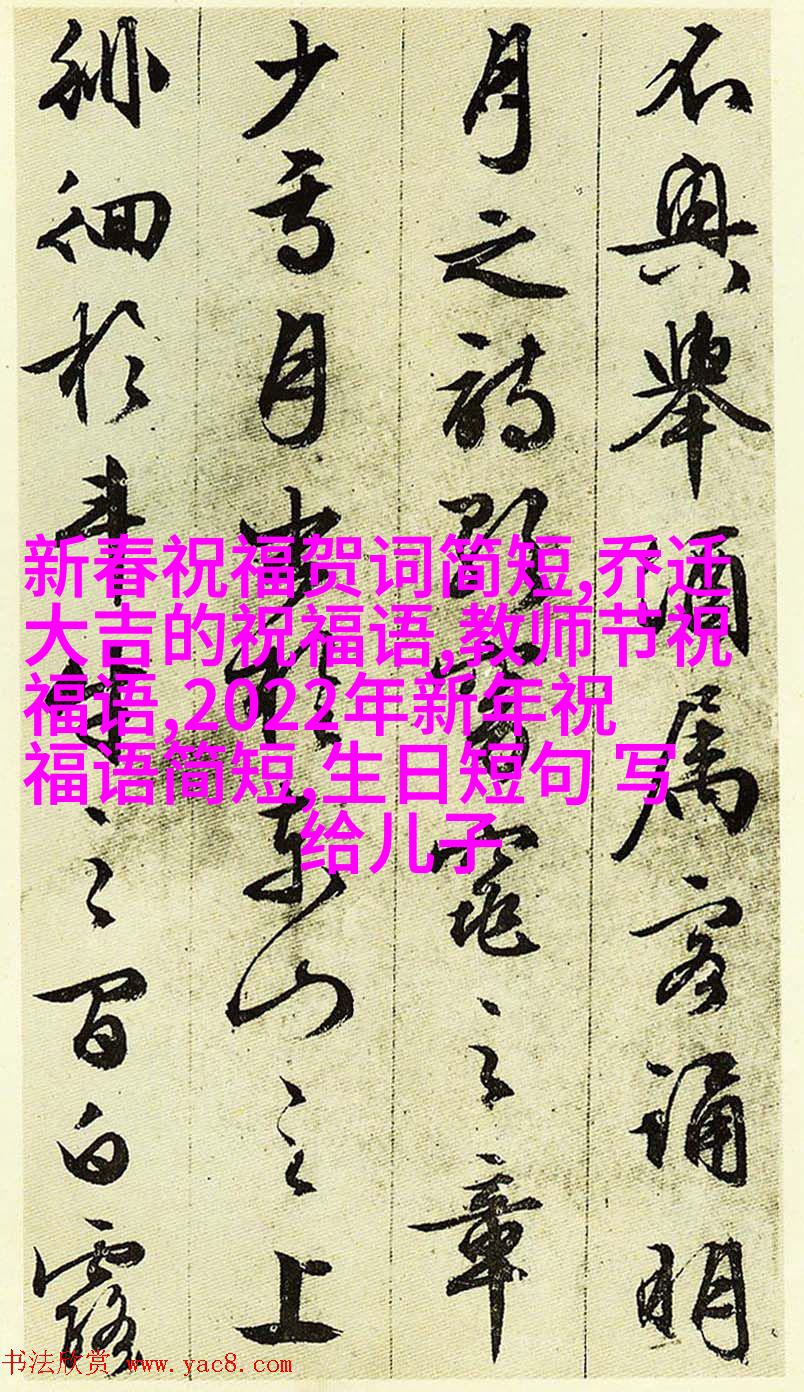 不興舉酒属客誦明
月之詩歌窈窕之章
少焉月出於東山之上
徘徊於斗牛之間白露
新春祝福贺词简短,乔迁
大吉的祝福语,教师节祝
福语,2022年新年祝
福语简短,生日短句 写
给儿子
书法欣赏 www.yac8.com